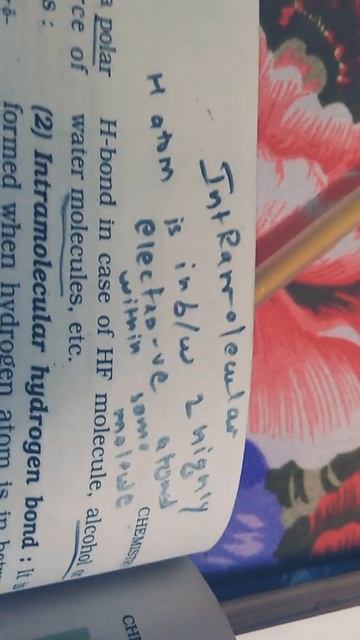 IntRamolecular
H atom is in b/w 2 highly
electro-ve atoms
within same
molecule
CHEMIS
a polar H-bond in case of HF molecule, alcohol
ce of water molecules, etc.
s :
(2) Intramolecular hydrogen bond : It is
formed when hydrogen atom is in betw
CH